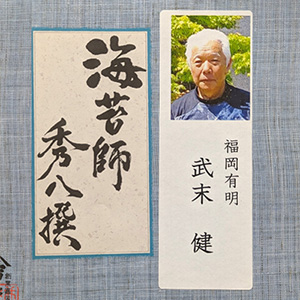 海苔師
秀八撰
福岡有明
武末 健